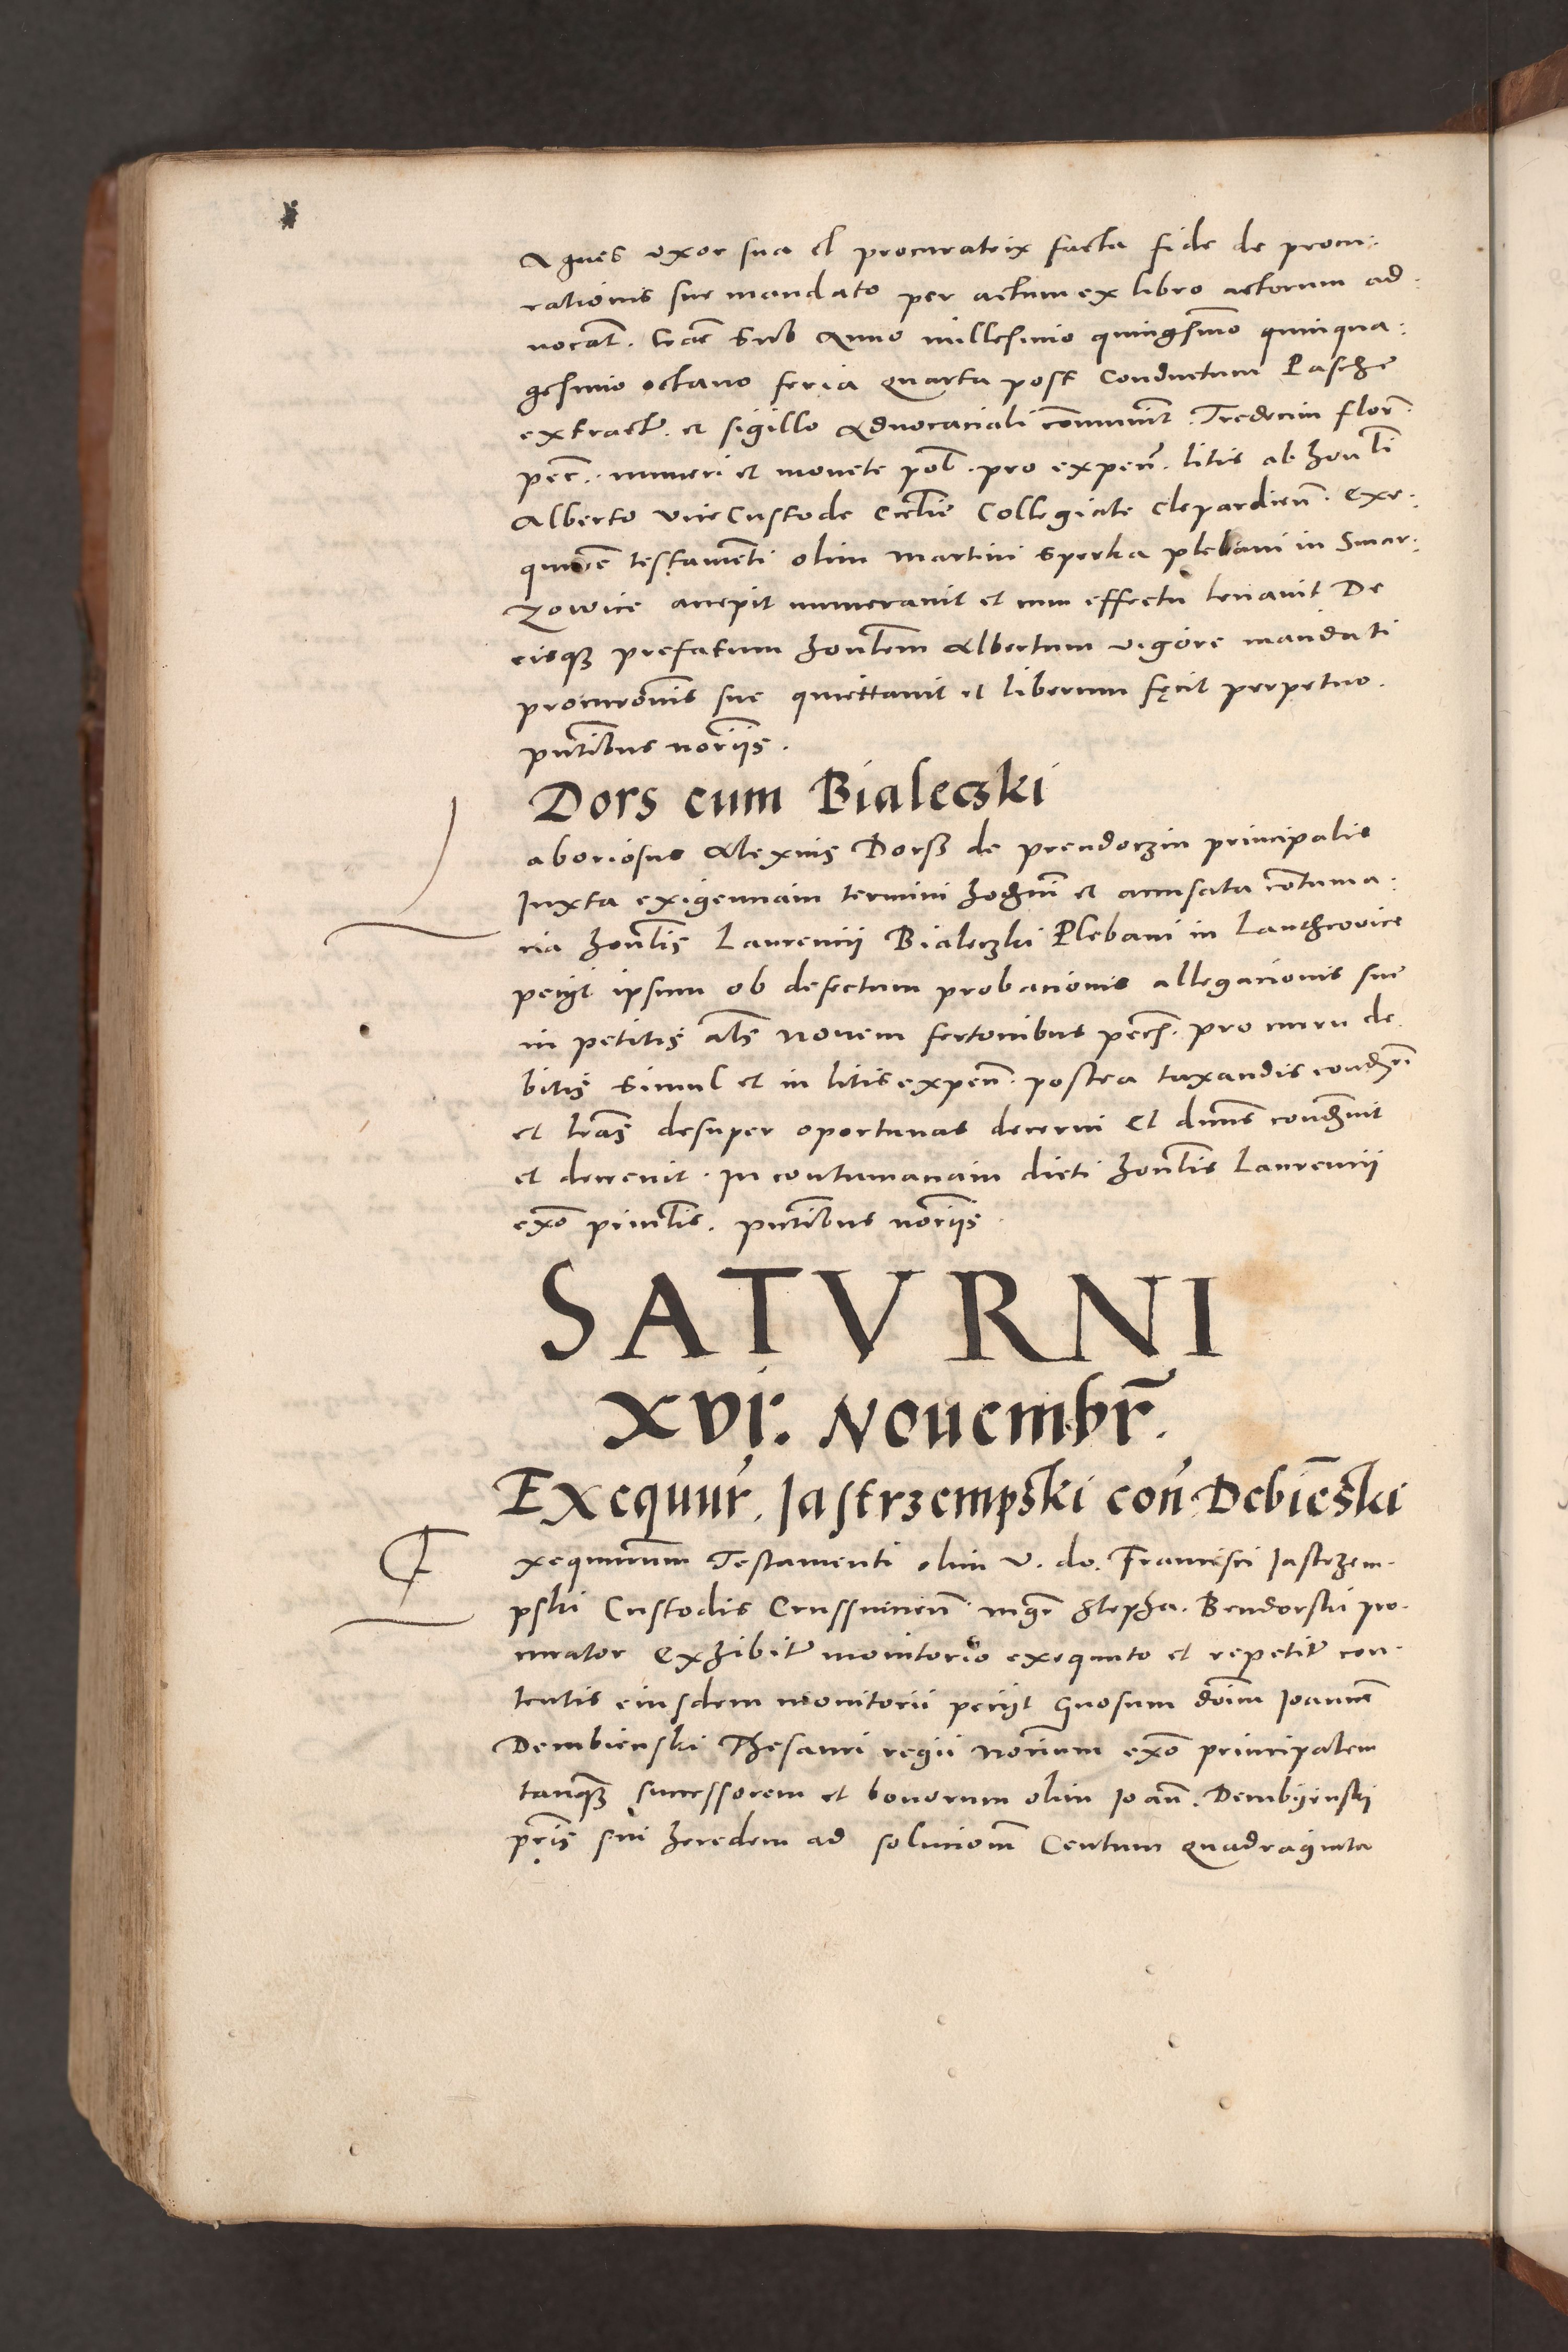 Agnes uxor sua et procuratrix facta fide de procu:
rationis sue mandato per actum ex libro actorum ad:
uocat̃. Crac̃ Sub Anno millesimo quingẽsmo quinqua:
gesimo octauo feria quarta post Conductum Pasche
extract̃. et sigillo Aduocaciali cõmunit̃. Tredecim flor̃.
pec̃. numeri et monete pol̃. pro expeñ. litis ab hon̄li
Alberto viceCustode Ecc̃lie Collegiate Clepardieñ. Exe:
quu͞e testamẽti olim Martini Sperka plebani in Smar:
zowice accepit numerauit et cum effectu leuauit De
eisq̃ prefatum hon̄lem Albertum vigore mandati
procurõnis sue quiettauit et liberum fecit perpetuo.
pñtibus nõriis.
Dors cum Bialeczki
Laboriosus Alexius Dorsz de Prendoczin principalis
Iuxta exigenciam termini hodierñi et accusata cõtuma:
cia hon̄lis Laurencii Bialeczki Plebani in Lanthcovice
peciit ipsum ob defectum probacionis allegacionis sue
in petitis als̃ Nouem fertonibus pec̃. pro curru de
bitis simul et in litis expeñ. postea taxandis condẽri
et lr̃as desuper oportunas decerni Et dnũs condẽnuit
et decreuit. In contumaciam dicti hon̄lis Laurencii
exõ pñcilis. pñtibus nõriis.
SATVRNI
XVI. Nouembr̃.
Exequut̃. Iastrzempski coñ Debiẽski
Exequutorum Testamenti olim v. do. Francisci Iastrzem-
pski Custodis Crussuicieñ. mgr̃ Stepha. Bendorski pro-
curator Exhibit̃ monitorio exequuto et repetit̃ con-
tentis eiusdem monitorii peciit Gnosum dõim Ioannẽ
Dembienski Thesauri regii Notarium exõ principalem
tanq̃ successorem et bonorum olim Ioañ. Dembyenski
pr̃is sui heredem ad solucionẽ Centum quadraginta